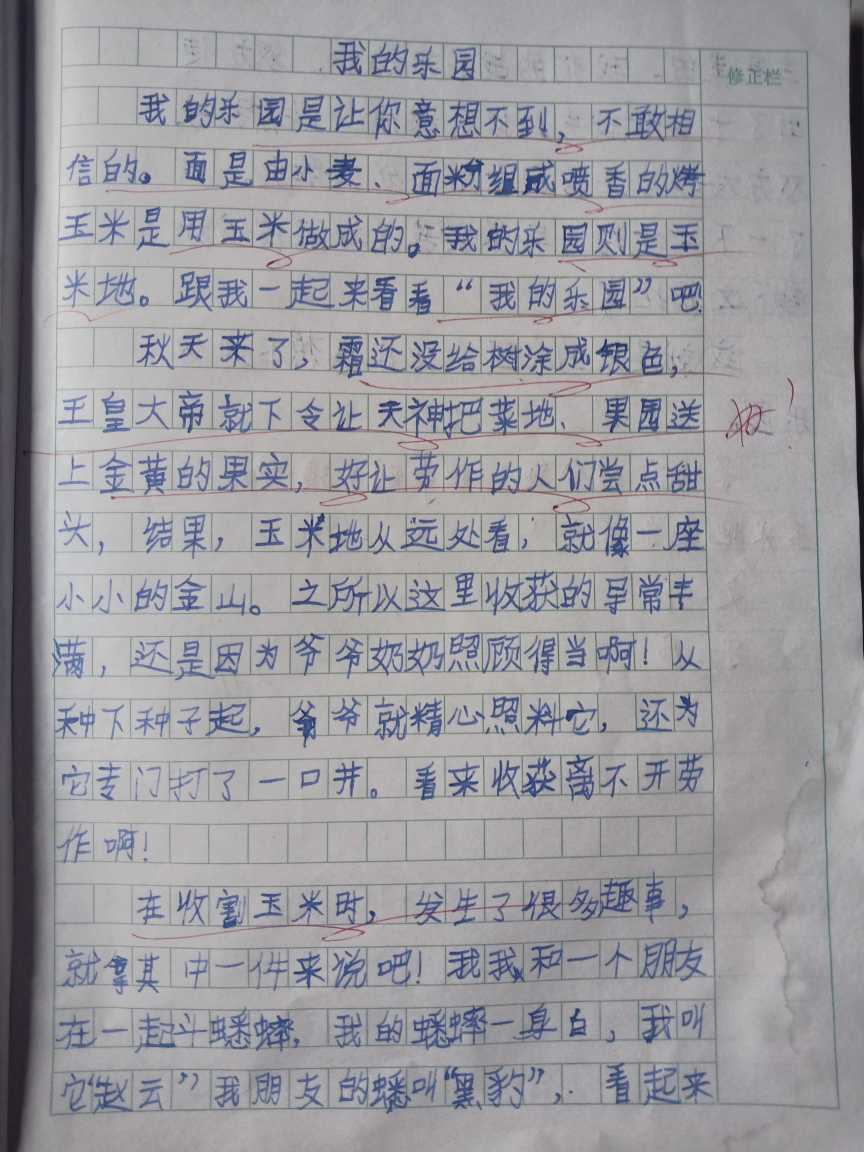 我的乐园
修正栏
我的乐园是让你意想不到，不敢相
信的。面是由小麦、面粉组成喷香的烤
玉米是用玉米做成的。我的乐园则是玉
米地。跟我一起来看看“我的乐园”吧！
秋天来了，霜还没给树涂成银色，
王皇大帝就下令让天神把菜地、果园送
上金黄的果实，好让劳作的人们尝点甜
头，结果，玉米地从远处看，就像一座
小小的金山。之所以这里收获的异常丰
满，还是因为爷爷奶奶照顾得当啊！从
种下种子起，爷爷就精心照料它，还为
它专门打了一口井。看来收获离不开劳
作啊！
在收割玉米时，发生了很多趣事，
就拿其中一件来说吧！我我和一个朋友
在一起斗蟋蟀，我的蟋蟀一身白，我叫
它“赵云”我朋友的蟋叫“黑豹”，看起来